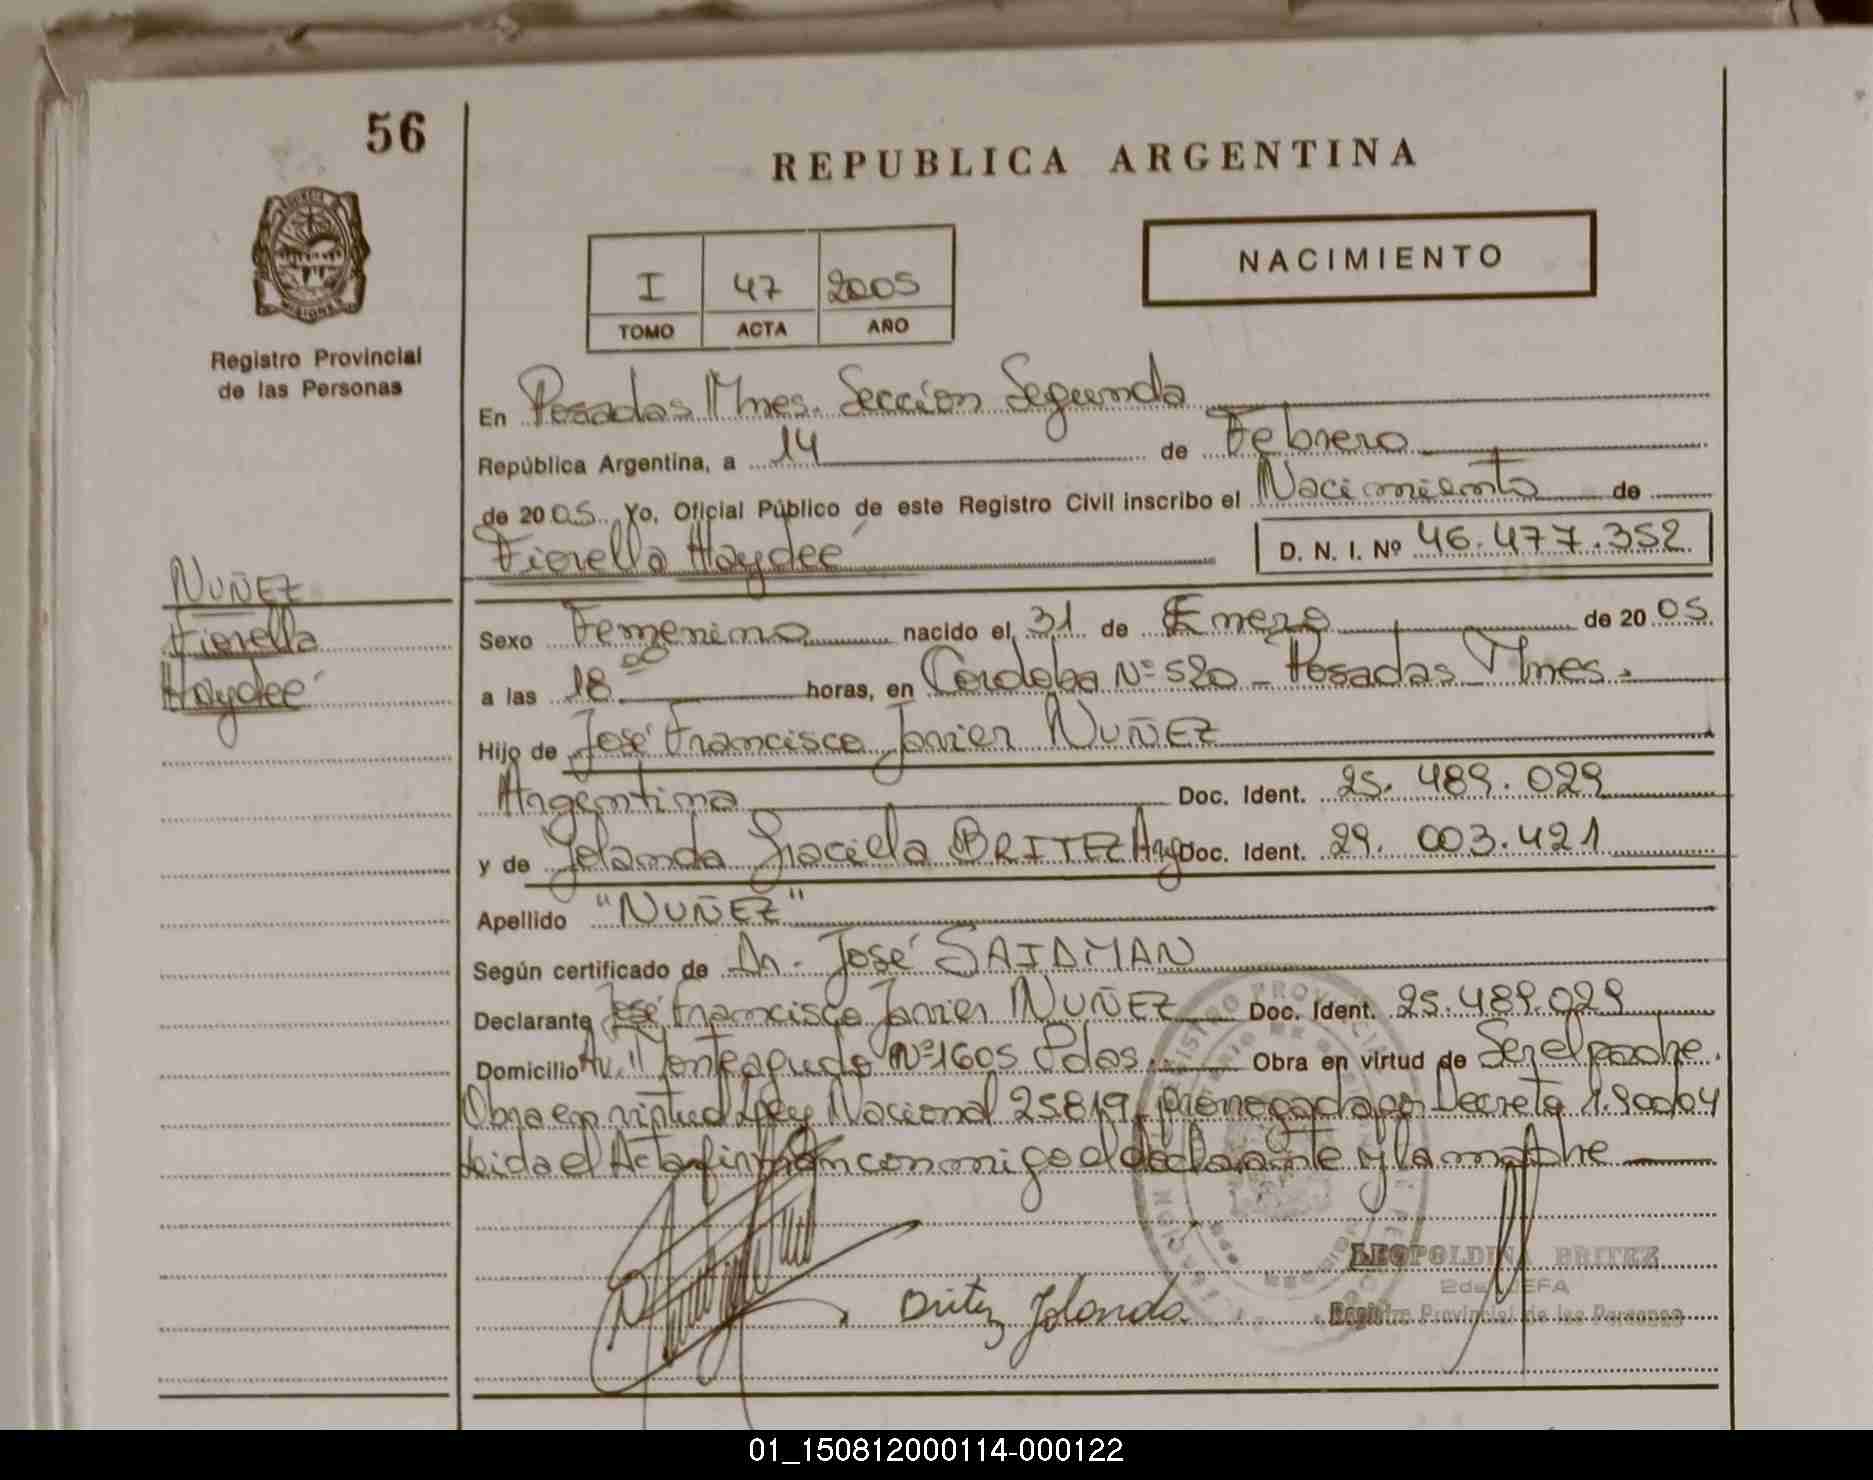 56
REPUBLICA ARGENTINA
NACIMIENTO
I 47 2005
TOMO ACTA AÑO
Registro Provincial
de las Personas
En Posadas Mnes. Sección Segunda
República Argentina, a 14 de Febrero
de 2005. Yo, Oficial Público de este Registro Civil inscribo el Nacimiento de
Fiorella Haydeé D. N. I. Nº 46.477.352
NUÑEZ
Fiorella
Haydeé
Sexo Femenino nacido el 31 de Enero de 2005.
a las 18 00 horas, en Cordoba Nº 520 - Posadas Mnes.
Hijo de José Francisco Javier NUÑEZ
Argentina Doc. Ident. 25.489.029
y de Yolanda Graciela BRITEZ Arg Doc. Ident. 29.003.421
Apellido "NUÑEZ"
Según certificado de Dr. José SAIDMAN
Declarante José Francisco Javier NUÑEZ Doc. Ident. 25.489.029
Domicilio Av. Monteagudo Nº 1605 Pdas. Obra en virtud de Ser el padre.
Obra en virtud Ley Nacional 25819 prorrogada por Decreto
Leida el Acta firman conmigo el declarante y la madre
Britez Yolanda
LEOPOLDINA BRITEZ
2da JEFA
Registro Provincial de las Personas
01_150812000114-000122